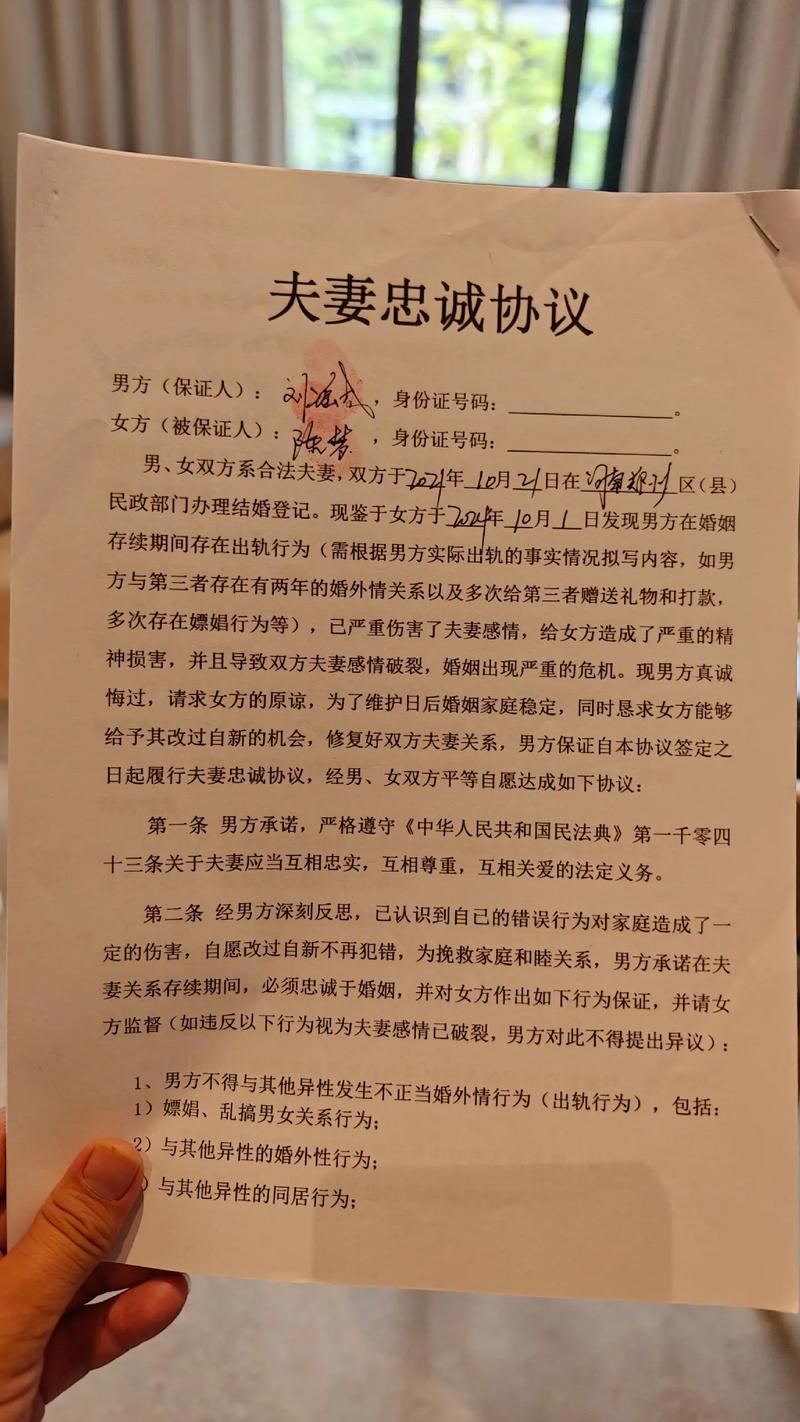 夫妻忠诚协议
男方（保证人）：刘，身份证号码：____________。
女方（被保证人）：陈梦，身份证号码：____________。
男、女双方系合法夫妻，双方于2021年10月21日在河南郑州区（县）
民政部门办理结婚登记。现鉴于女方于2024年10月1日发现男方在婚姻
存续期间存在出轨行为（需根据男方实际出轨的事实情况拟写内容，如男
方与第三者存在有两年的婚外情关系以及多次给第三者赠送礼物和打款，
多次存在嫖娼行为等），已严重伤害了夫妻感情，给女方造成了严重的精
神损害，并且导致双方夫妻感情破裂，婚姻出现严重的危机。现男方真诚
悔过，请求女方的原谅，为了维护日后婚姻家庭稳定，同时恳求女方能够
给予其改过自新的机会，修复好双方夫妻关系，男方保证自本协议签定之
日起履行夫妻忠诚协议，经男、女双方平等自愿达成如下协议：
第一条 男方承诺，严格遵守《中华人民共和国民法典》第一千零四
十三条关于夫妻应当互相忠实，互相尊重，互相关爱的法定义务。
第二条 经男方深刻反思，已认识到自已的错误行为对家庭造成了一
定的伤害，自愿改过自新不再犯错，为挽救家庭和睦关系，男方承诺在夫
妻关系存续期间，必须忠诚于婚姻，并对女方作出如下行为保证，并请女
方监督（如违反以下行为视为夫妻感情已破裂，男方对此不得提出异议）：
1、男方不得与其他异性发生不正当婚外情行为（出轨行为），包括：
1）嫖娼、乱搞男女关系行为；
2）与其他异性的婚外性行为；
）与其他异性的同居行为；